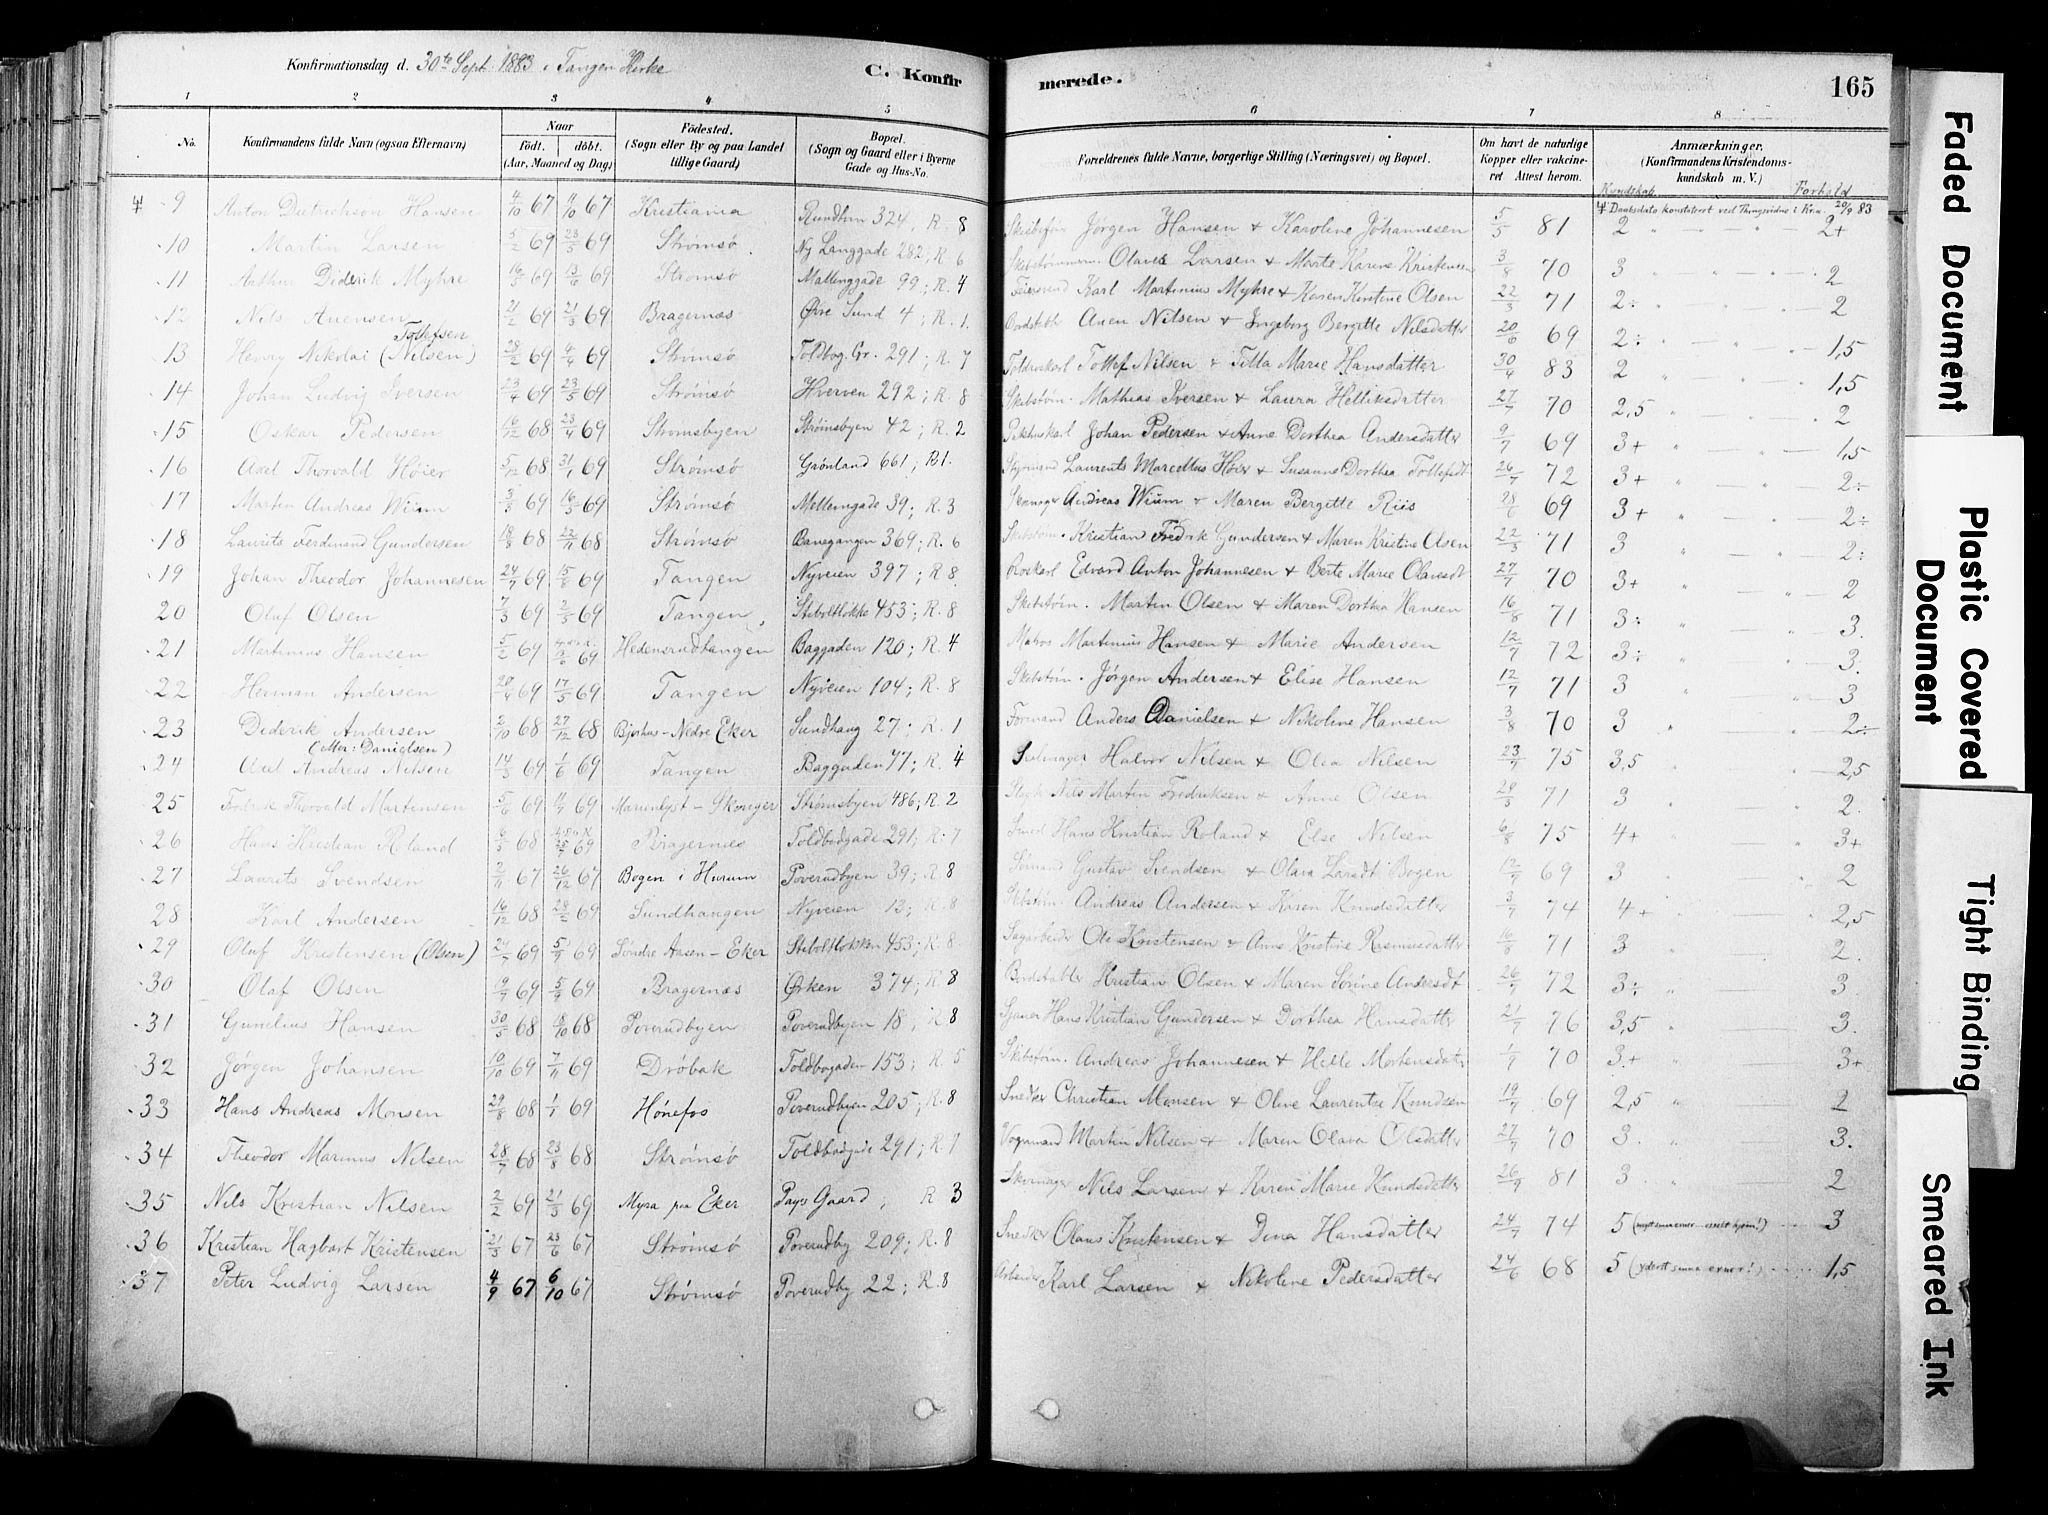 Konfirmationsdag d. 30te Sept. 1883 i Tangen Kirke C. Konfir merede. 165
1 2 3 4 5 6 7 8
No. Konfirmandens fulde Navn (ogsaa Efternavn) Naar födt. döbt. (Aar, Maaned og Dag) Födested. (Sogn eller By og paa Landet tillige Gaard) Bopæl. (Sogn og Gaard eller i Byerne Gade og Hus-No. Forældrenes fulde Navne, borgerlige Stilling (Næringsvei) og Bopæl. Om havt de naturlige Kopper eller vakcineret Attest herom. Anmærkninger. (Konfirmandens Kristendomskundskab m. V.)
Kundskab Forhold
Daabsdato konstateret ved Thingsvidne i Kra. 20/9 83
9 Anton Dietrichson Hansen 4/10 67 11/10 67 Kristiania Rundtom 324; R. 8 Jørgen Hansen & Karoline Johannesen 5/5 81 2 2+
10 Martin Larsen 5/2 69 23/5 69 Strømsø Ny Langgade 282; R. 6 Skibstømmerm. Olaves Larsen & Marte Karine Kristensen 3/8 70 3 2
11 Arthur Diderik Myhre 16/5 69 13/6 69 Strømsø Mellemgade 99; R. 4 Feiersvend Karl Martinius Myhre & Karen Kirstine Olsen 22/3 71 2÷ 2
12 Nils Auensen 21/2 69 21/3 69 Bragernæs Øvre Sund 4; R. 1. Bordstabler Auen Nilsen & Ingeborg Bergitte Nilsdatter 20/6 69 2÷ 1,5
13 Henry Nikolai Tollefsen (Nilsen) 28/2 69 4/4 69 Strømsø Toldbog. Gr. 291; R. 7 Tollef Nilsen & Titta Marie Hansdatter 30/4 83 2 1,5
14 Johan Ludvig Iversen 23/4 69 23/5 69 Strømsø Hverven 292; R. 8 Skibstøm. Mathias Iversen & Laura Helliksdatter 27/7 70 2,5 2
15 Oskar Pedersen 16/12 68 23/4 69 Strømsbyen Strømsbyen 42; R. 2 Pakhuskarl Johan Pedersen & Anne Dorthea Andersdatter 9/7 69 3+ 1,5
16 Axel Thorvald Høier 5/12 68 31/1 69 Strømsø Grønland 661; B1. Styrmand Laurents Marcellus Høier & Susanne Dorthea Tollefsdt 26/7 72 3+ 2÷
17 Martin Andreas Wium 3/3 69 16/5 69 Strømsø Mellemgade 39; R. 3 Andreas Wium & Maren Bergitte Riis 28/6 69 3+ 2÷
18 Laurits Ferdinand Gundersen 18/9 68 22/11 68 Strømsø Banegangen 369; R. 6 Skibstøm. Kristian Fredrik Gundersen & Maren Kristine Olsen 22/3 71 3 2÷
19 Johan Theodor Johannesen 24/7 69 15/8 69 Tangen Nyveien 397; R. 8 Roskarl Edvard Anton Johannesen & Berte Marie Olavesdt 27/7 70 3+ 2
20 Oluf Olsen 7/3 69 2/5 69 Tangen Stiboltløkke 453; R. 8 Skibstøm. Martin Olsen & Maren Dorthea Hansen 16/8 71 3÷ 3.
21 Martinius Hansen 5/2 69 69 Hedensrudtangen Baggaden 120; R. 4 Matros Martinius Hansen & Marie Andersen 12/7 72 3÷ 3.
22 Herman Andersen 20/4 69 17/5 69 Tangen Nyveien 104; R. 8 Skibstøm. Jørgen Andersen & Elise Hansen 12/7 71 3 3
23 Diderik Andersen (eller: Danielsen) 2/10 68 27/12 68 Bjørhus-Nedre Eker Sundhaug 27; R. 1 Formand Anders Danielsen & Nikoline Hansen 3/8 70 3 2÷
24 Axel Andreas Nilsen 14/3 69 1/6 69 Tangen Baggaden 77; R. 4 Halvor Nilsen & Olea Nilsen 23/7 75 3,5 2,5
25 Fredrik Thorvald Martinsen 5/6 69 11/7 69 Marienlyst-Skouger Strømsbyen 486; R. 2 Nils Martin Fredriksen & Anne Olsen 29/3 71 3 2.
26 Hans Kristian Roland 16/5 68 69 Bragernæs Toldbodgade 291; R. 7 Smed Hans Kristian Roland & Else Nilsen 6/8 75 4+ 3+
27 Laurits Svendsen 2/11 67 26/12 67 Bogen i Hurum Poverudbyen 39; R. 8 Sømand Gustav Svendsen & Olava Larsdt Bogen 12/7 69 3 2
28 Karl Andersen 16/12 68 28/2 69 Sundhaugen Nyveien 13; R. 8 Skibstøm. Andreas Andersen & Karen Knudsdatter 3/7 74 4+ 2,5
29 Oluf Kristensen (Olsen) 24/7 69 5/9 69 Søndre Aasen-Eker Stiboltløkken 453; R. 8 Sagarbeider Ole Kristensen & Anne Kristine Rasmusdatter 16/8 71 3 2.
30 Olaf Olsen 19/7 69 5/9 69 Bragernæs Ørken 374; R. 8 Bordstabler Kristian Olsen & Maren Sørine Andersdt 26/7 72 3÷ 3
31 Gunelius Hansen 30/5 68 18/10 68 Poverudbyen Poverudbyen 18; R. 8 Hans Kristian Gundersen & Dorthea Hansdatter 21/7 76 3,5 3.
32 Jørgen Johansen 10/10 69 7/11 69 Drøbak Toldbogaden 153; R. 5 Skibstøm. Andreas Johannesen & Helle Mortensdatter 1/7 70 3+ 3+
33 Hans Andreas Monsen 29/8 68 1/1 69 Hønefos Poverudbyen 205; R. 8 Snedker Christian Monsen & Oline Laurentse Knudsen 19/7 69 2,5 2
34 Theodor Marinus Nilsen 28/7 68 23/8 68 Strømsø Toldbodgade 291; R. 7 Vognmand Martin Nilsen & Maren Olava Olsdatter 27/7 70 3. 3.
35 Nils Kristian Nilsen 2/2 69 21/3 69 Myra paa Eker Pays Gaard; R 3 Skomager Nils Larsen & Karen Marie Knudsdatter 26/9 81 3 2
36 Kristian Hagbart Kristensen 21/3 67 23/6 67 Strømsø Poverudby 209; R. 8 Snedker Olaus Kristensen & Dina Hansdatter 24/7 74 5 3
37 Peter Ludvig Larsen 4/9 67 6/10 67 Strømsø Poverudby 22; R. 8 Arbeider Karl Larsen & Nikoline Pedersdatter 24/6 68 5 (yderst smaa evner!) 1,5
Faded Document
Plastic Covered Document
Tight Binding
Smeared Ink